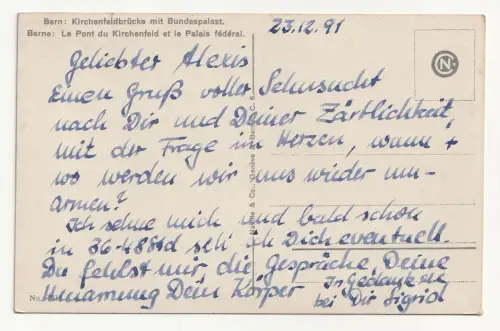 Bern: Kirchenfeldbrücke mit Bundespalast.
Berne: Le Pont du Kirchenfeld et le Palais fédéral.
23.12.91
Geliebter Alexis
Einen Gruß voller Sehnsucht
nach Dir und Deiner Zärtlichkeit,
mit der Frage im Herzen, wann +
wo werden wir uns wieder um-
armen?
Ich sehne mich und bald schon
in 36-48 Std seh ich Dich eventuell.
Du fehlst mir, die Gespräche Deine
Umarmung Dein Körper
In Gedanken
bei Dir Sigrid
No.
& Co., Genève